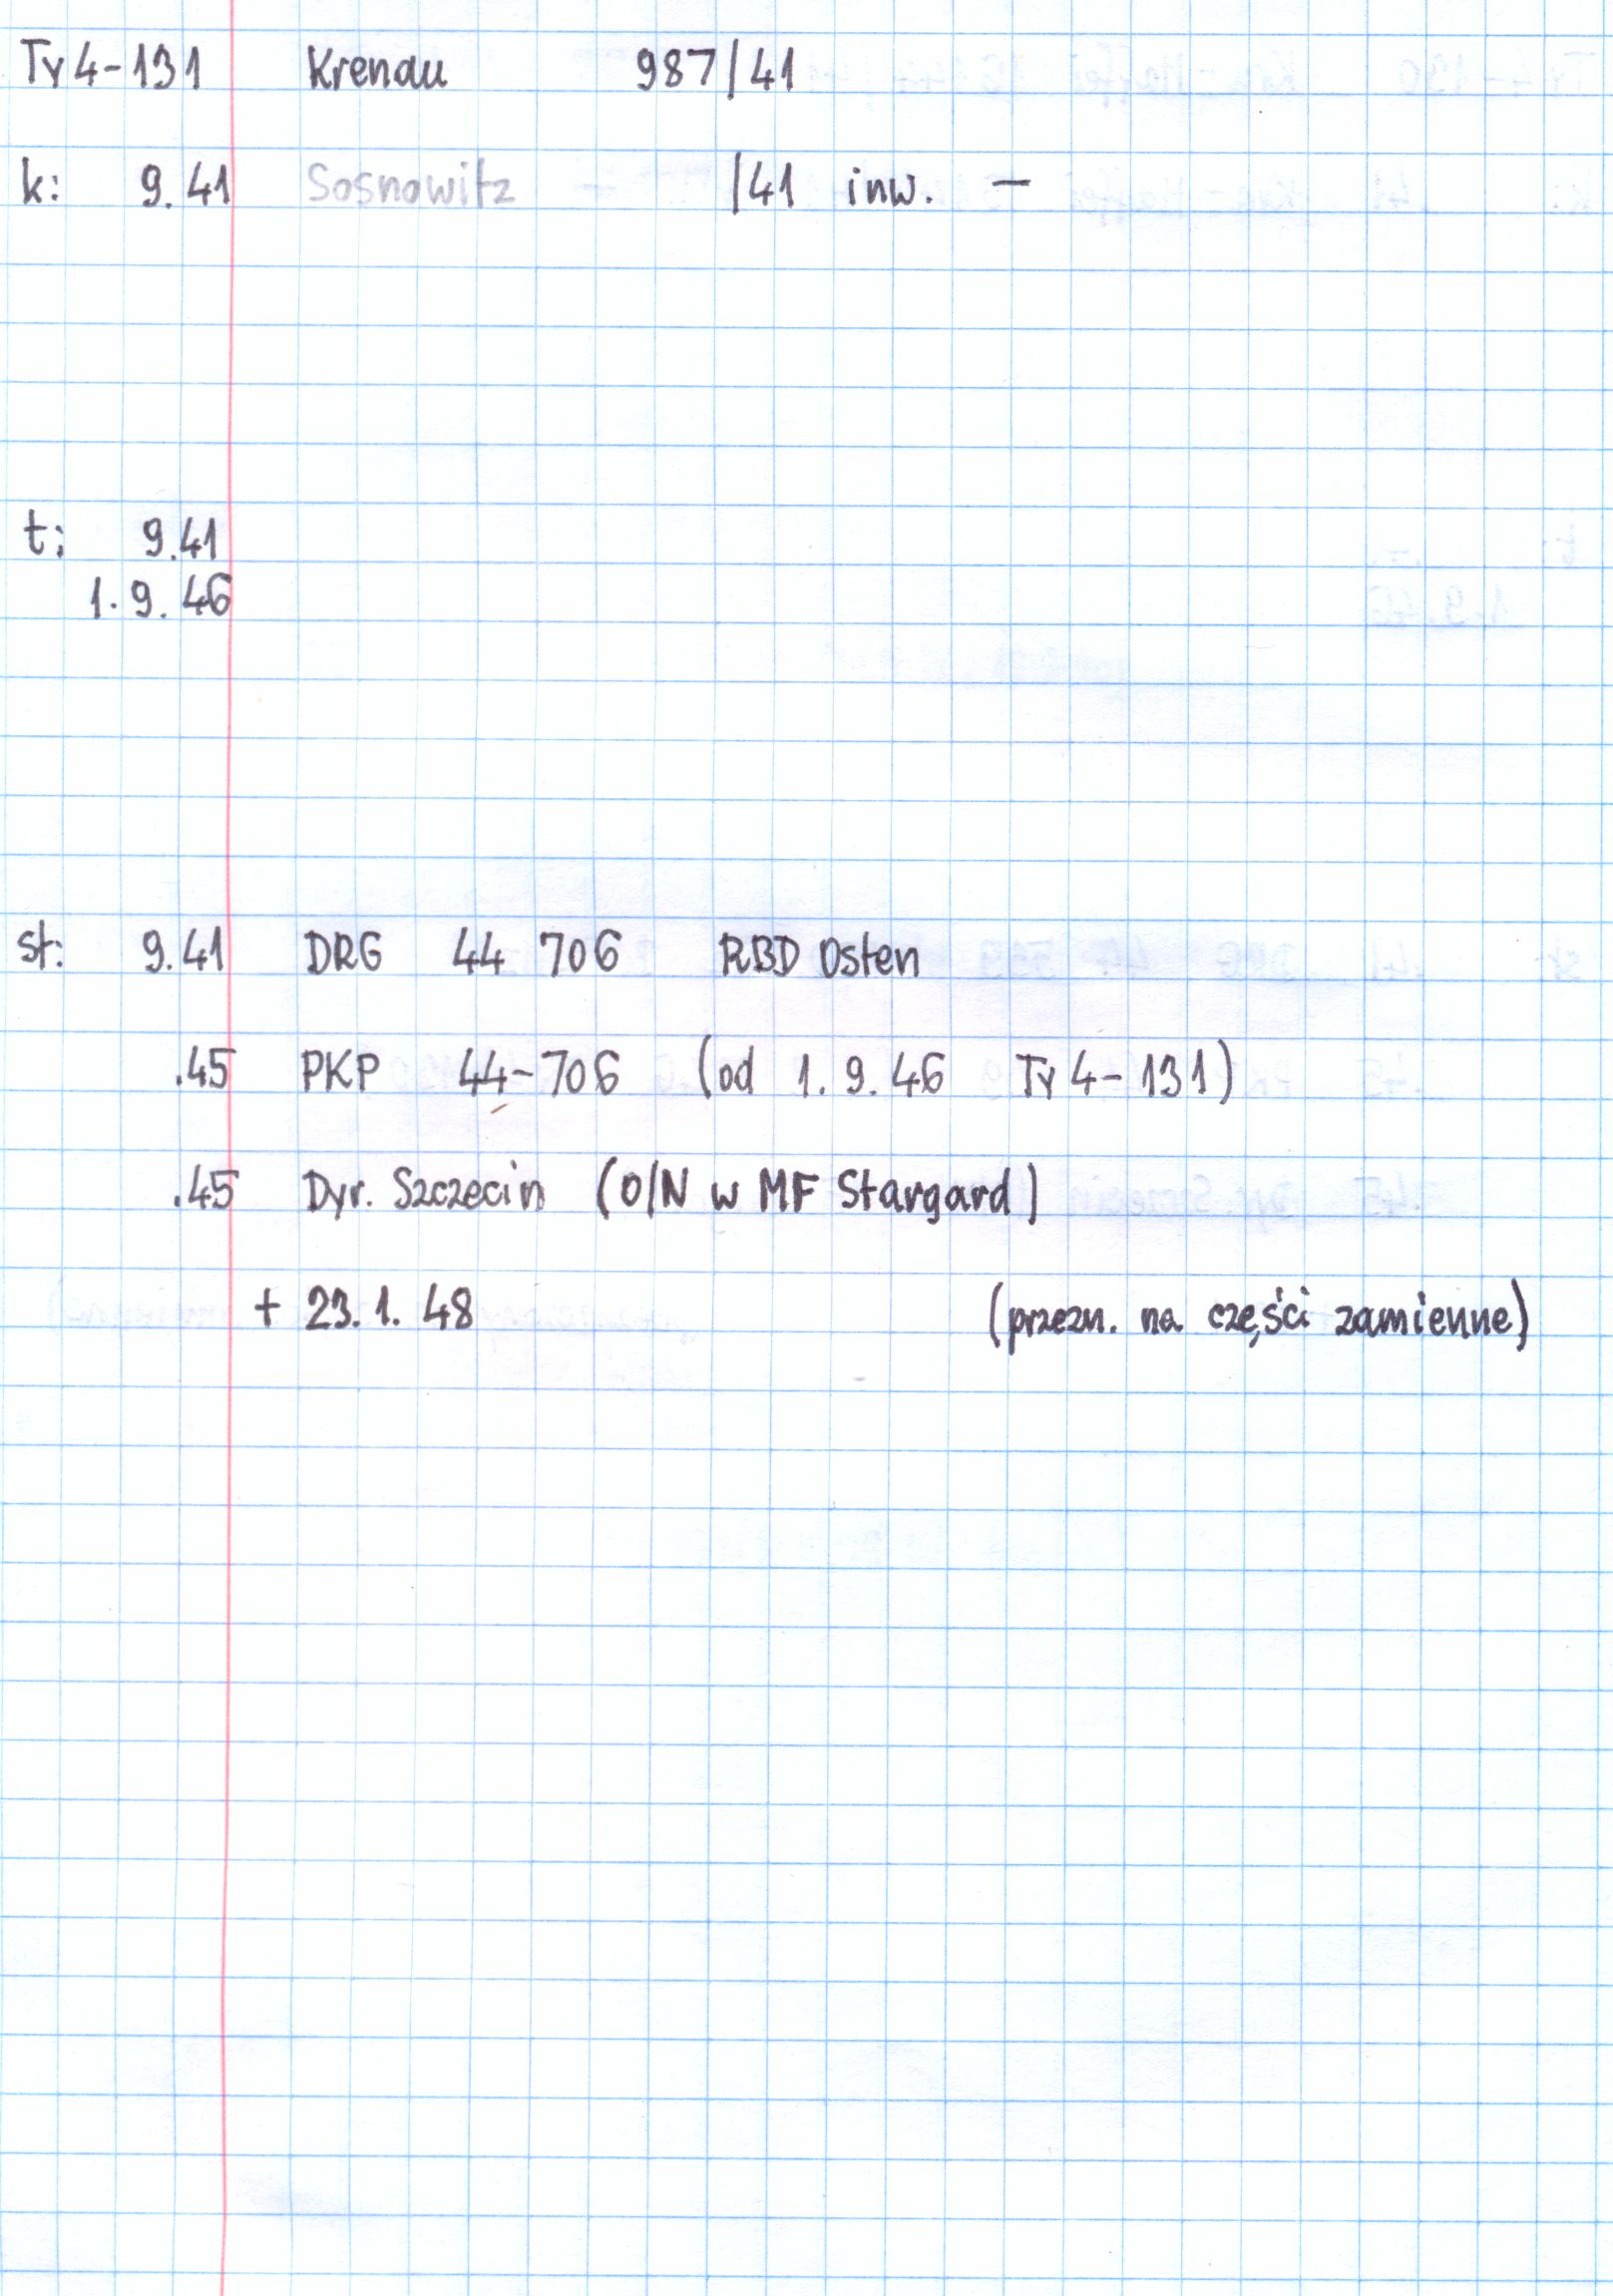 Ty4-131 Krenau 987/41
k: 9.41 Sosnowitz /41 inw. –
t: 9.41
1.9.46
st: 9.41 DRG 44 706 RBD Osten
.45 PKP 44-706 (od 1.9.46 Ty4-131)
.45 Dyr. Szczecin (O/N w MF Stargard)
+ 23.1.48 (przezn. na części zamienne)